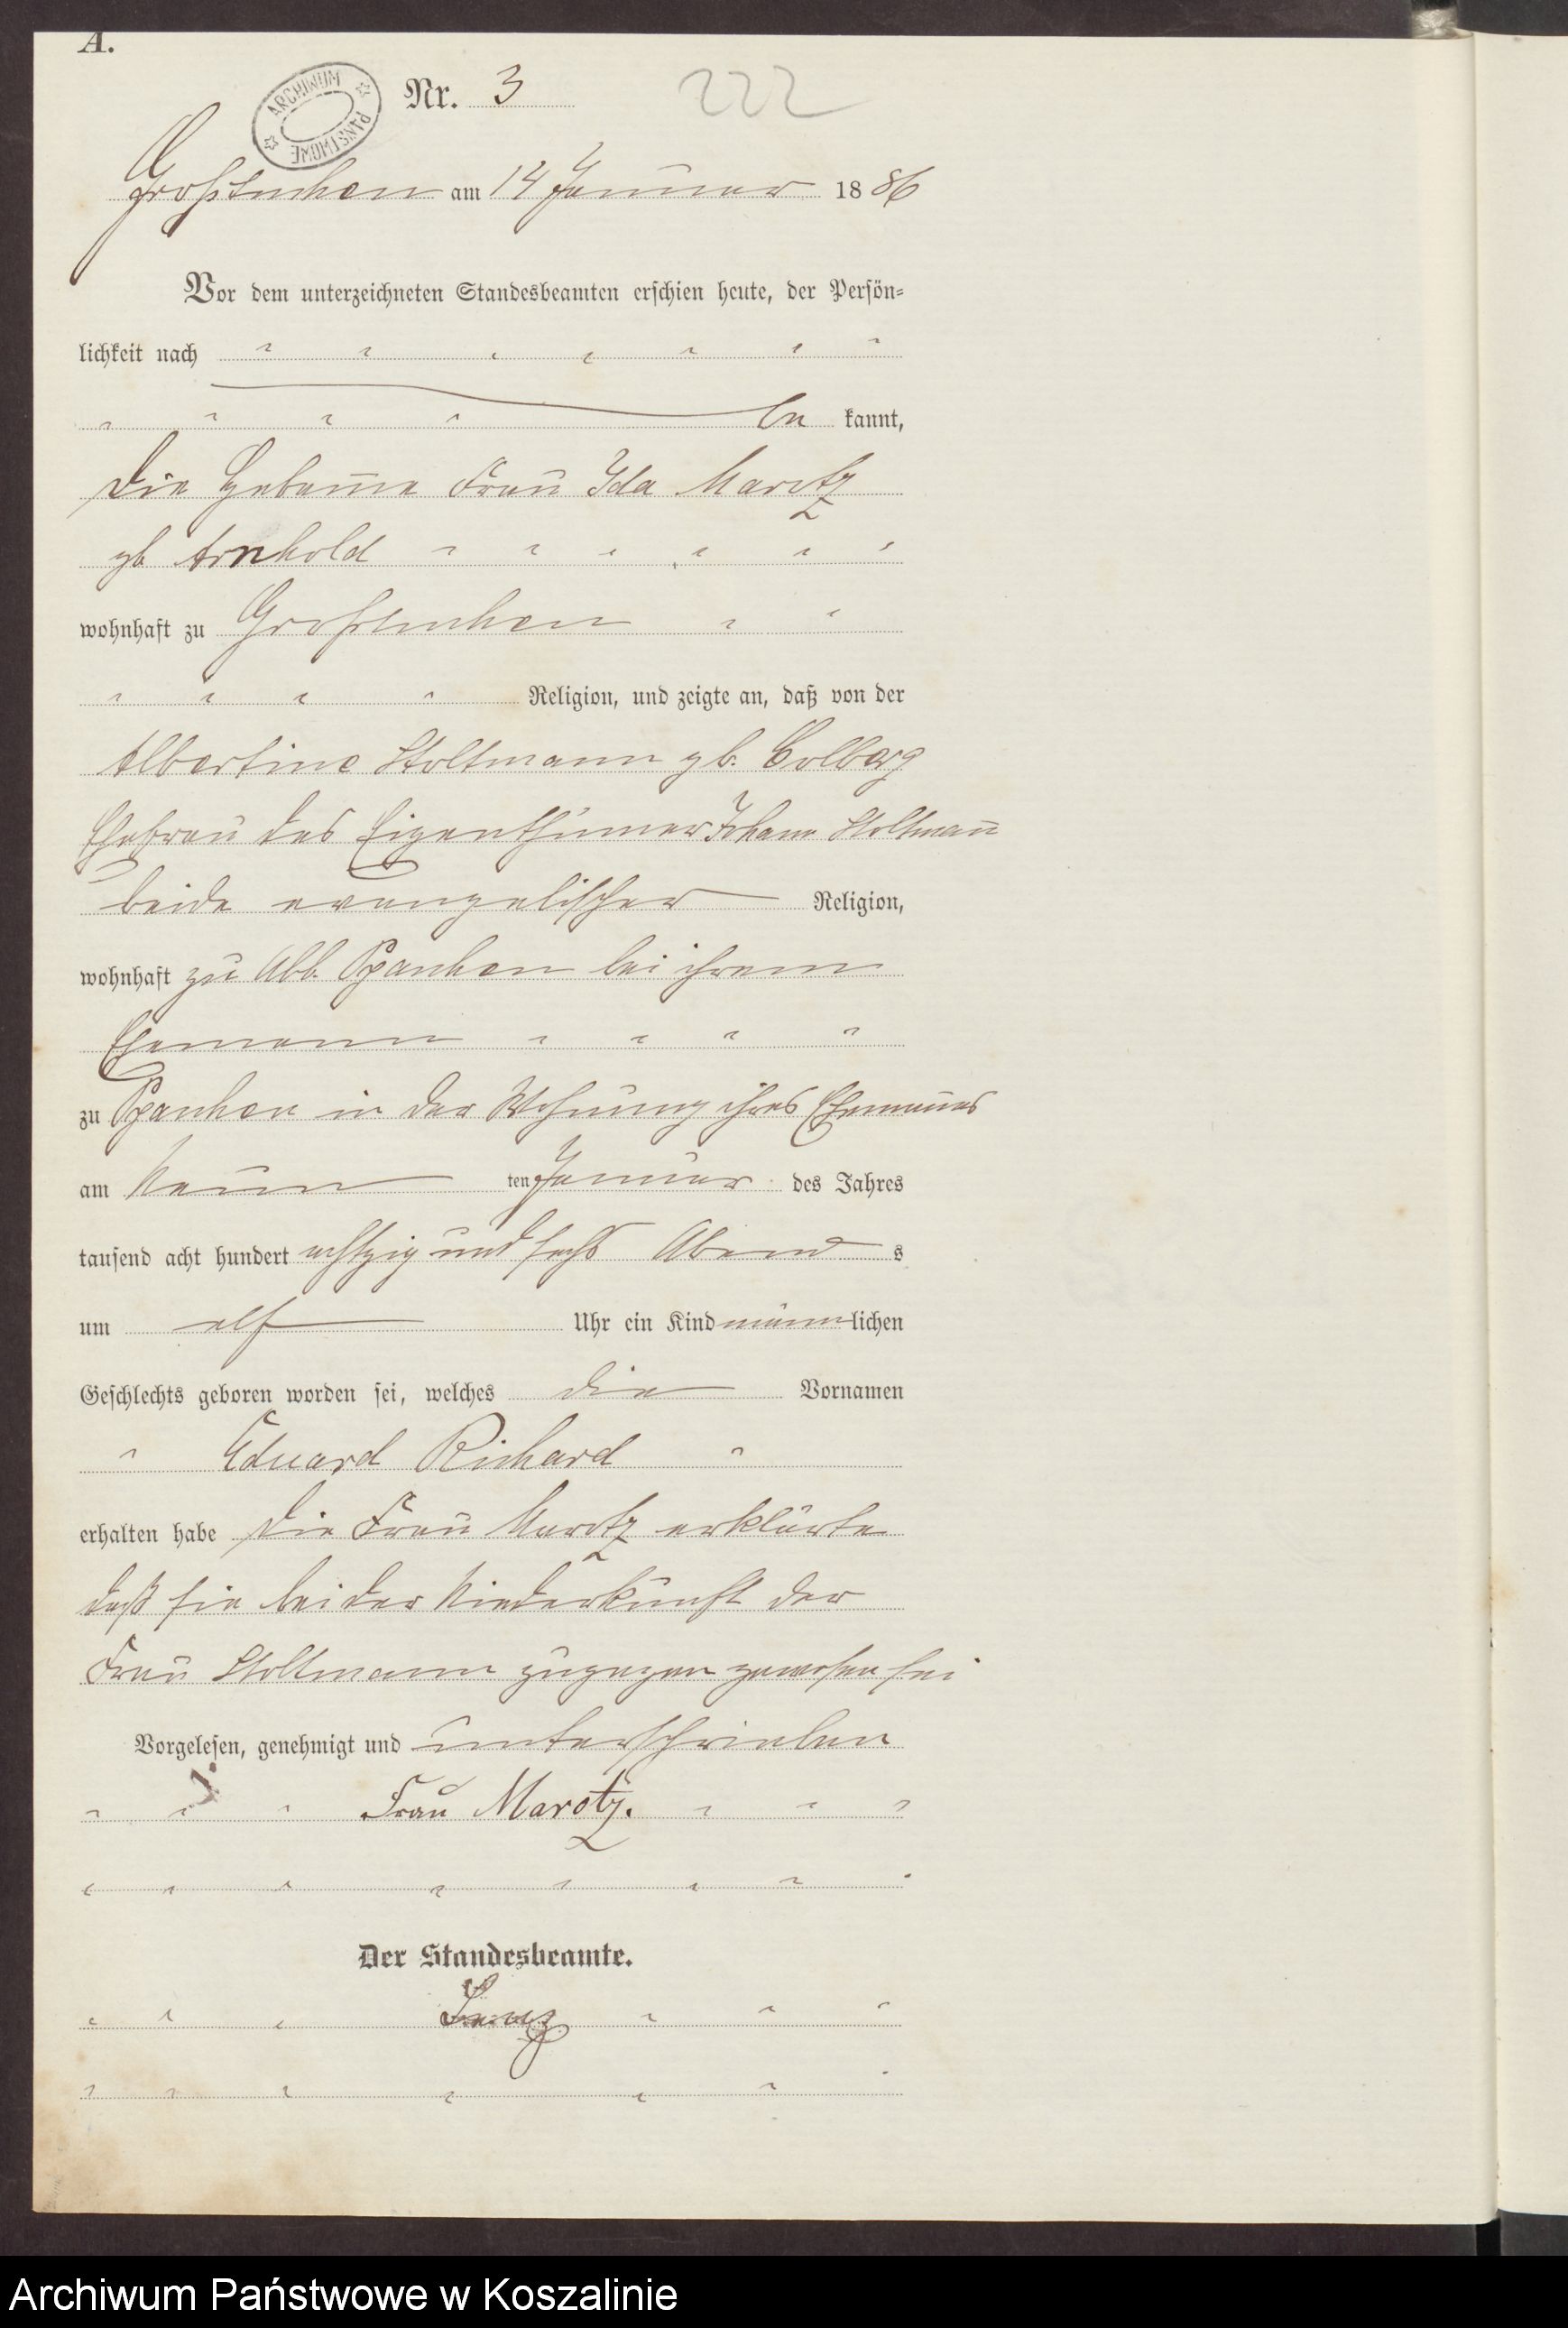 A.
ARCHIWUM PAŃSTWOWE
Nr. 3
222
Großtuchen am 14 Januar 1886
Vor dem unterzeichneten Standesbeamten erschien heute, der Persön-
lichkeit nach
be kannt,
die Hebamme Frau Ida Marotz
gb. Arnhold
wohnhaft zu Großtuchen
Religion, und zeigte an, daß von der
Albertine Stoltmann gb. Colberg
Ehefrau des Eigenthümer Johann Stoltmann
beide evangelischer Religion,
wohnhaft zu Abb. bei ihrem
Ehemann
zu in der Wohnung ihres Ehemannes
am Neun ten Januar des Jahres
tausend acht hundert achtzig und sechs Abend s
um elf Uhr ein Kind männ lichen
Geschlechts geboren worden sei, welches die Vornamen
Eduard Richard
erhalten habe die Frau Marotz erklärte
daß sie bei der Niederkunft der
Frau Stoltmann zugegen gewesen sei
Vorgelesen, genehmigt und unterschrieben
Frau Marotz.
Der Standesbeamte.
Archiwum Państwowe w Koszalinie